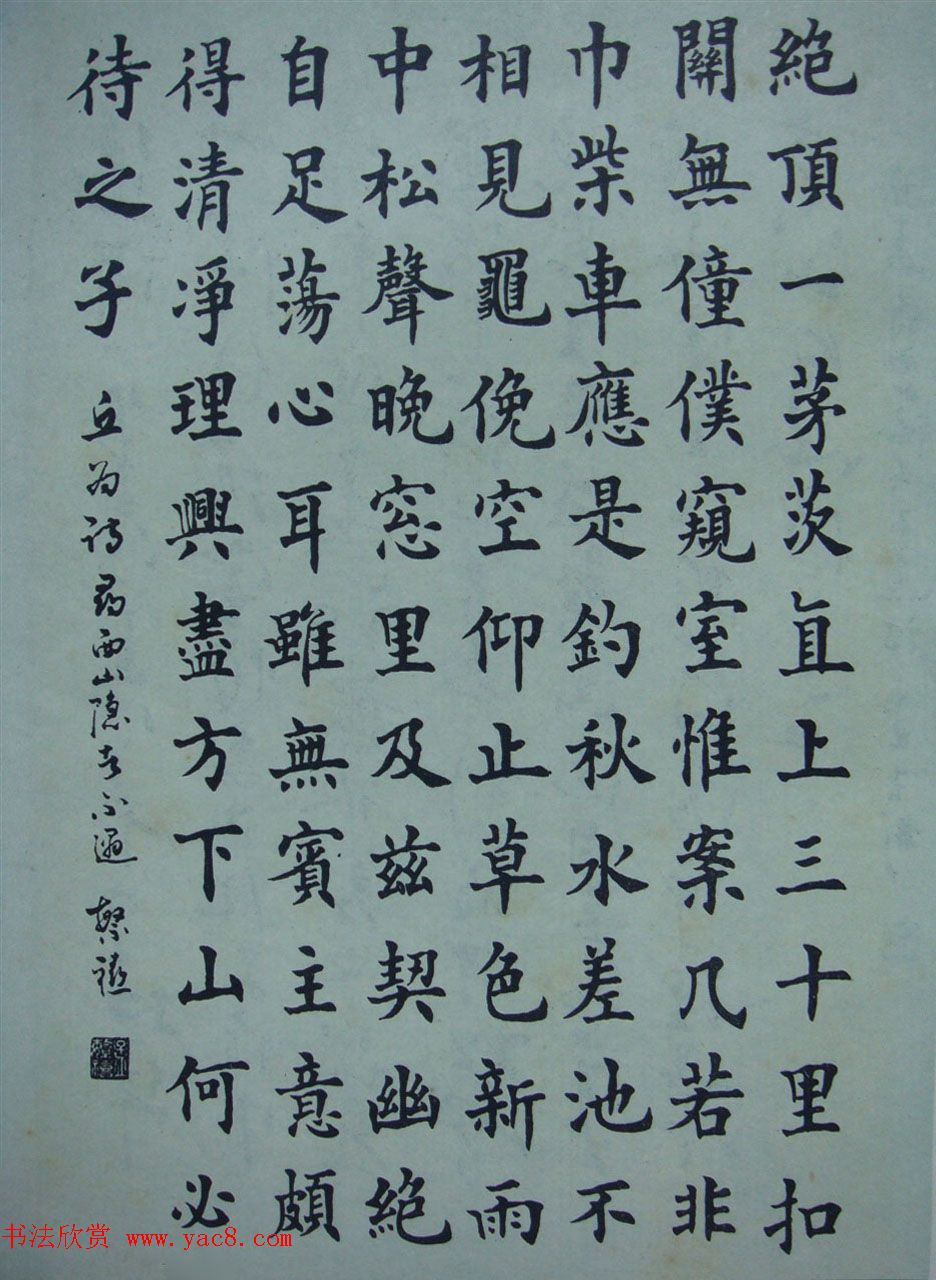 絕頂一茅茨直上三十里扣
關無僮僕窺室惟案几若非
巾柴車應是釣秋水差池不
相見黽俛空仰止草色新雨
中松聲晚窓里及茲契幽絕
自足蕩心耳雖無賓主意頗
得清凈理興盡方下山何必
待之子
丘为诗尋西山隐者不遇
书法欣赏 www.yac8.com